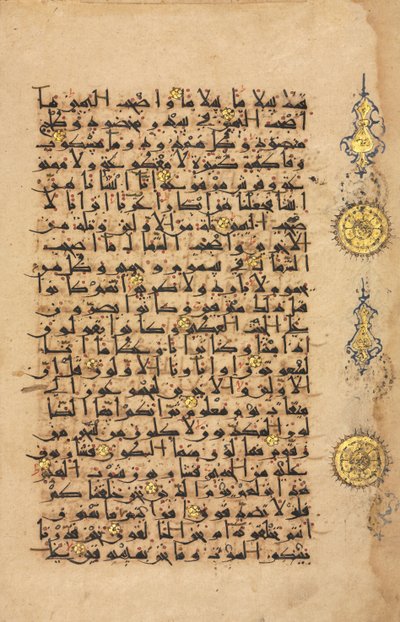 قيلا سلما سلما واصحب اليمين ما
اصحب اليمين في سدر مخضود وطلح
منضود وظل ممدود وما مسكوب
وفكهة كثيرة لا مقطوعة ولا ممنو
عة وفرش مرفوعة انا انشانهن
انشا فجعلنهن ابكارا عربا اترابا لا
صحب اليمين ثلة من الاولين وثلة من
الاخرين واصحب الشمال ما اصحب
الشمال في سموم وحميم وظل من
يحموم لا بارد ولا كريم انهم كانوا
قبل ذلك مترفين وكانوا يصرون
على الحنث العظيم وكانوا يقولون
ائذا متنا وكنا ترابا وعظاما انا
لمبعوثون او اباونا الاولون قل ان
الاولين والاخرين لمجموعون الى
ميقت يوم معلوم ثم انكم ايها الضا
لون المكذبون لاكلون من شجر من
زقوم فمالون منها البطون فشربون
عليه من الحميم فشربون شرب الهيم
هذا نزلهم يوم الدين نحن خلقنكم
فلولا تصدقون افريتم ما تمنون ا
انتم تخلقونه ام نحن الخلقون نحن قدرنا
بينكم الموت وما نحن بمسبوقين على